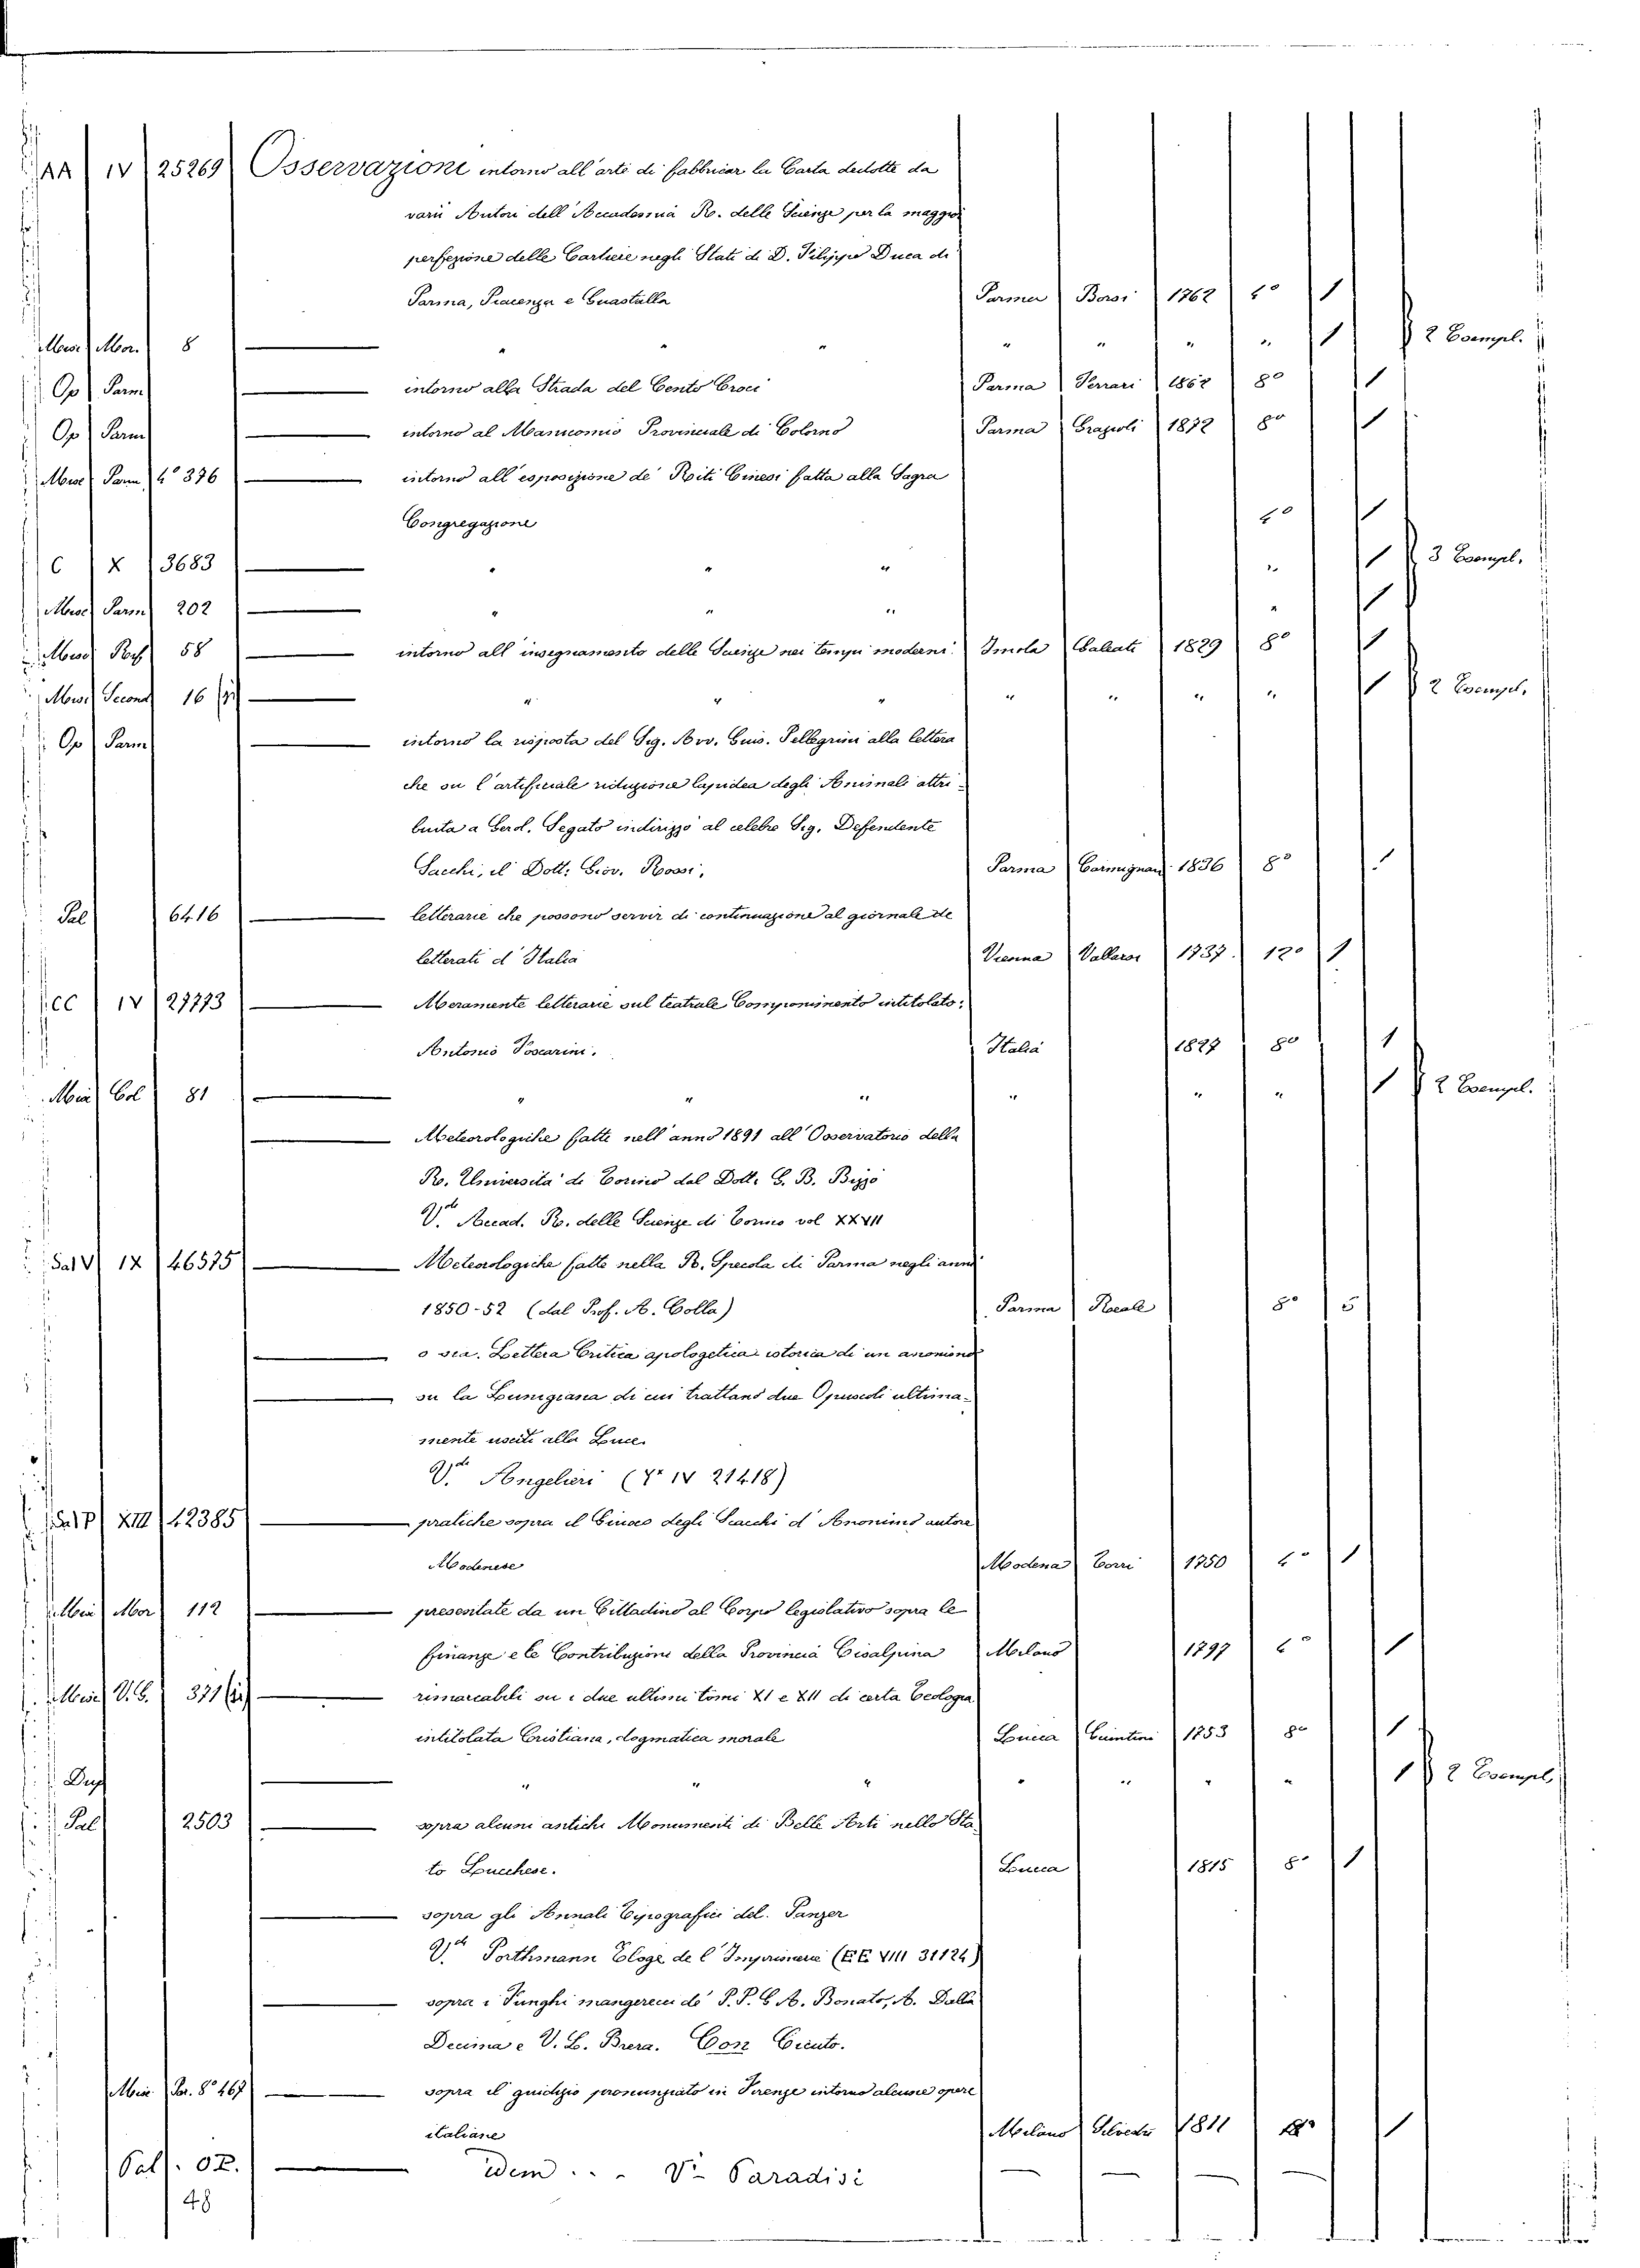 AA IV 25269 Osservazioni intorno all'arte di fabbricar la Carta dedotte da
varii Autori dell'Accademia R. delle Scienze per la maggior
perfezione delle Cartiere negli Stati di D. Filippo Duca di
Parma, Piacenza e Guastalla Parma Borsi 1762 4° 1
Misc Mor. 8 — " " " " " " " 1 2 Esempl.
Op Parm — intorno alla Strada del Cento Croci Parma Ferrari 1862 8° 1
Op Parm — intorno al Manicomio Provinciale di Colorno Parma Grazioli 1872 8° 1
Misc Parm 4° 376 — intorno all'esposizione de' Riti Cinesi fatta alla Sagra
Congregazione 4° 1
C X 3683 — " " " " 1 3 Esempl.
Misc Parm 202 — " " " " 1
Misc 58 — intorno all'insegnamento delle Scienze nei tempi moderni. Imola Galeati 1829 8° 1
Misc Second 16 — " " " " " " " 1 2 Esempl.
Op Parm — intorno la risposta del Sig. Avv. Gius. Pellegrini alla lettera
che su l'artificiale riduzione lapidea degli Animali attri-
buita a Gerol. Segato indirizzò al celebre Sig. Defendente
Sacchi, il Dott. Giov. Rossi, Parma Carmignani 1836 8° 1
Pal 6416 — letterarie che possono servir di continuazione al giornale de
letterati d'Italia Vienna Vallarsi 1737. 12° 1
CC IV 27773 — Meramente letterarie sul teatrale Componimento intitolato:
Antonio Foscarini. Italia 1827 8° 1
Misc Col 81 — " " " " " " 1 2 Esempl.
— Meteorologiche fatte nell'anno 1891 all'Osservatorio della
R. Università di Torino dal Dott. G. B. Rizzo
V. Accad. R. delle Scienze di Torino vol XXVII
Sal V IX 46575 — Meteorologiche fatte nella R. Specola di Parma negli anni
1850-52 (dal Prof. A. Colla) Parma Reale 8° 5
— o sia. Lettera Critica apologetica istorica di un anonimo
— su la Lunigiana di cui trattano due Opuscoli ultima-
mente usciti alla Luce.
V. Angelieri (Y* IV 21418)
Sal P XIII 12385 — pratiche sopra il Giuoco degli Scacchi d'Anonimo autore
Modenese Modena Torri 1750 4° 1
Misc Mor 112 — presentate da un Cittadino al Corpo legislativo sopra le
finanze e le Contribuzioni della Provincia Cisalpina Milano 1797 4° 1
Misc V. G. 371 — rimarcabili su i due ultimi tomi XI e XII di certa Teologia
intitolata Cristiana, dogmatica morale Lucca Giuntini 1753 8° 1
Dup — " " " " " " " 1 2 Esempl
Pal 2503 — sopra alcuni antichi Monumenti di Belle Arti nello Sta-
to Lucchese. Lucca 1815 8° 1
— sopra gli Annali Tipografici del. Panzer
V. Porthmann Eloge de l'Imprimerie (EE VIII 31124)
— sopra i Funghi mangerecci de' P. P. G. A. Bonato, A. Dalla
Decima e V. L. Brera. Con Giunte.
Misc. Par. 8° 467 — sopra il giudizio pronunziato in Firenze intorno alcune opere
italiane Milano Silvestri 1811 1
Pal. 02. — idem . . . Vi Paradisi — — — —
48